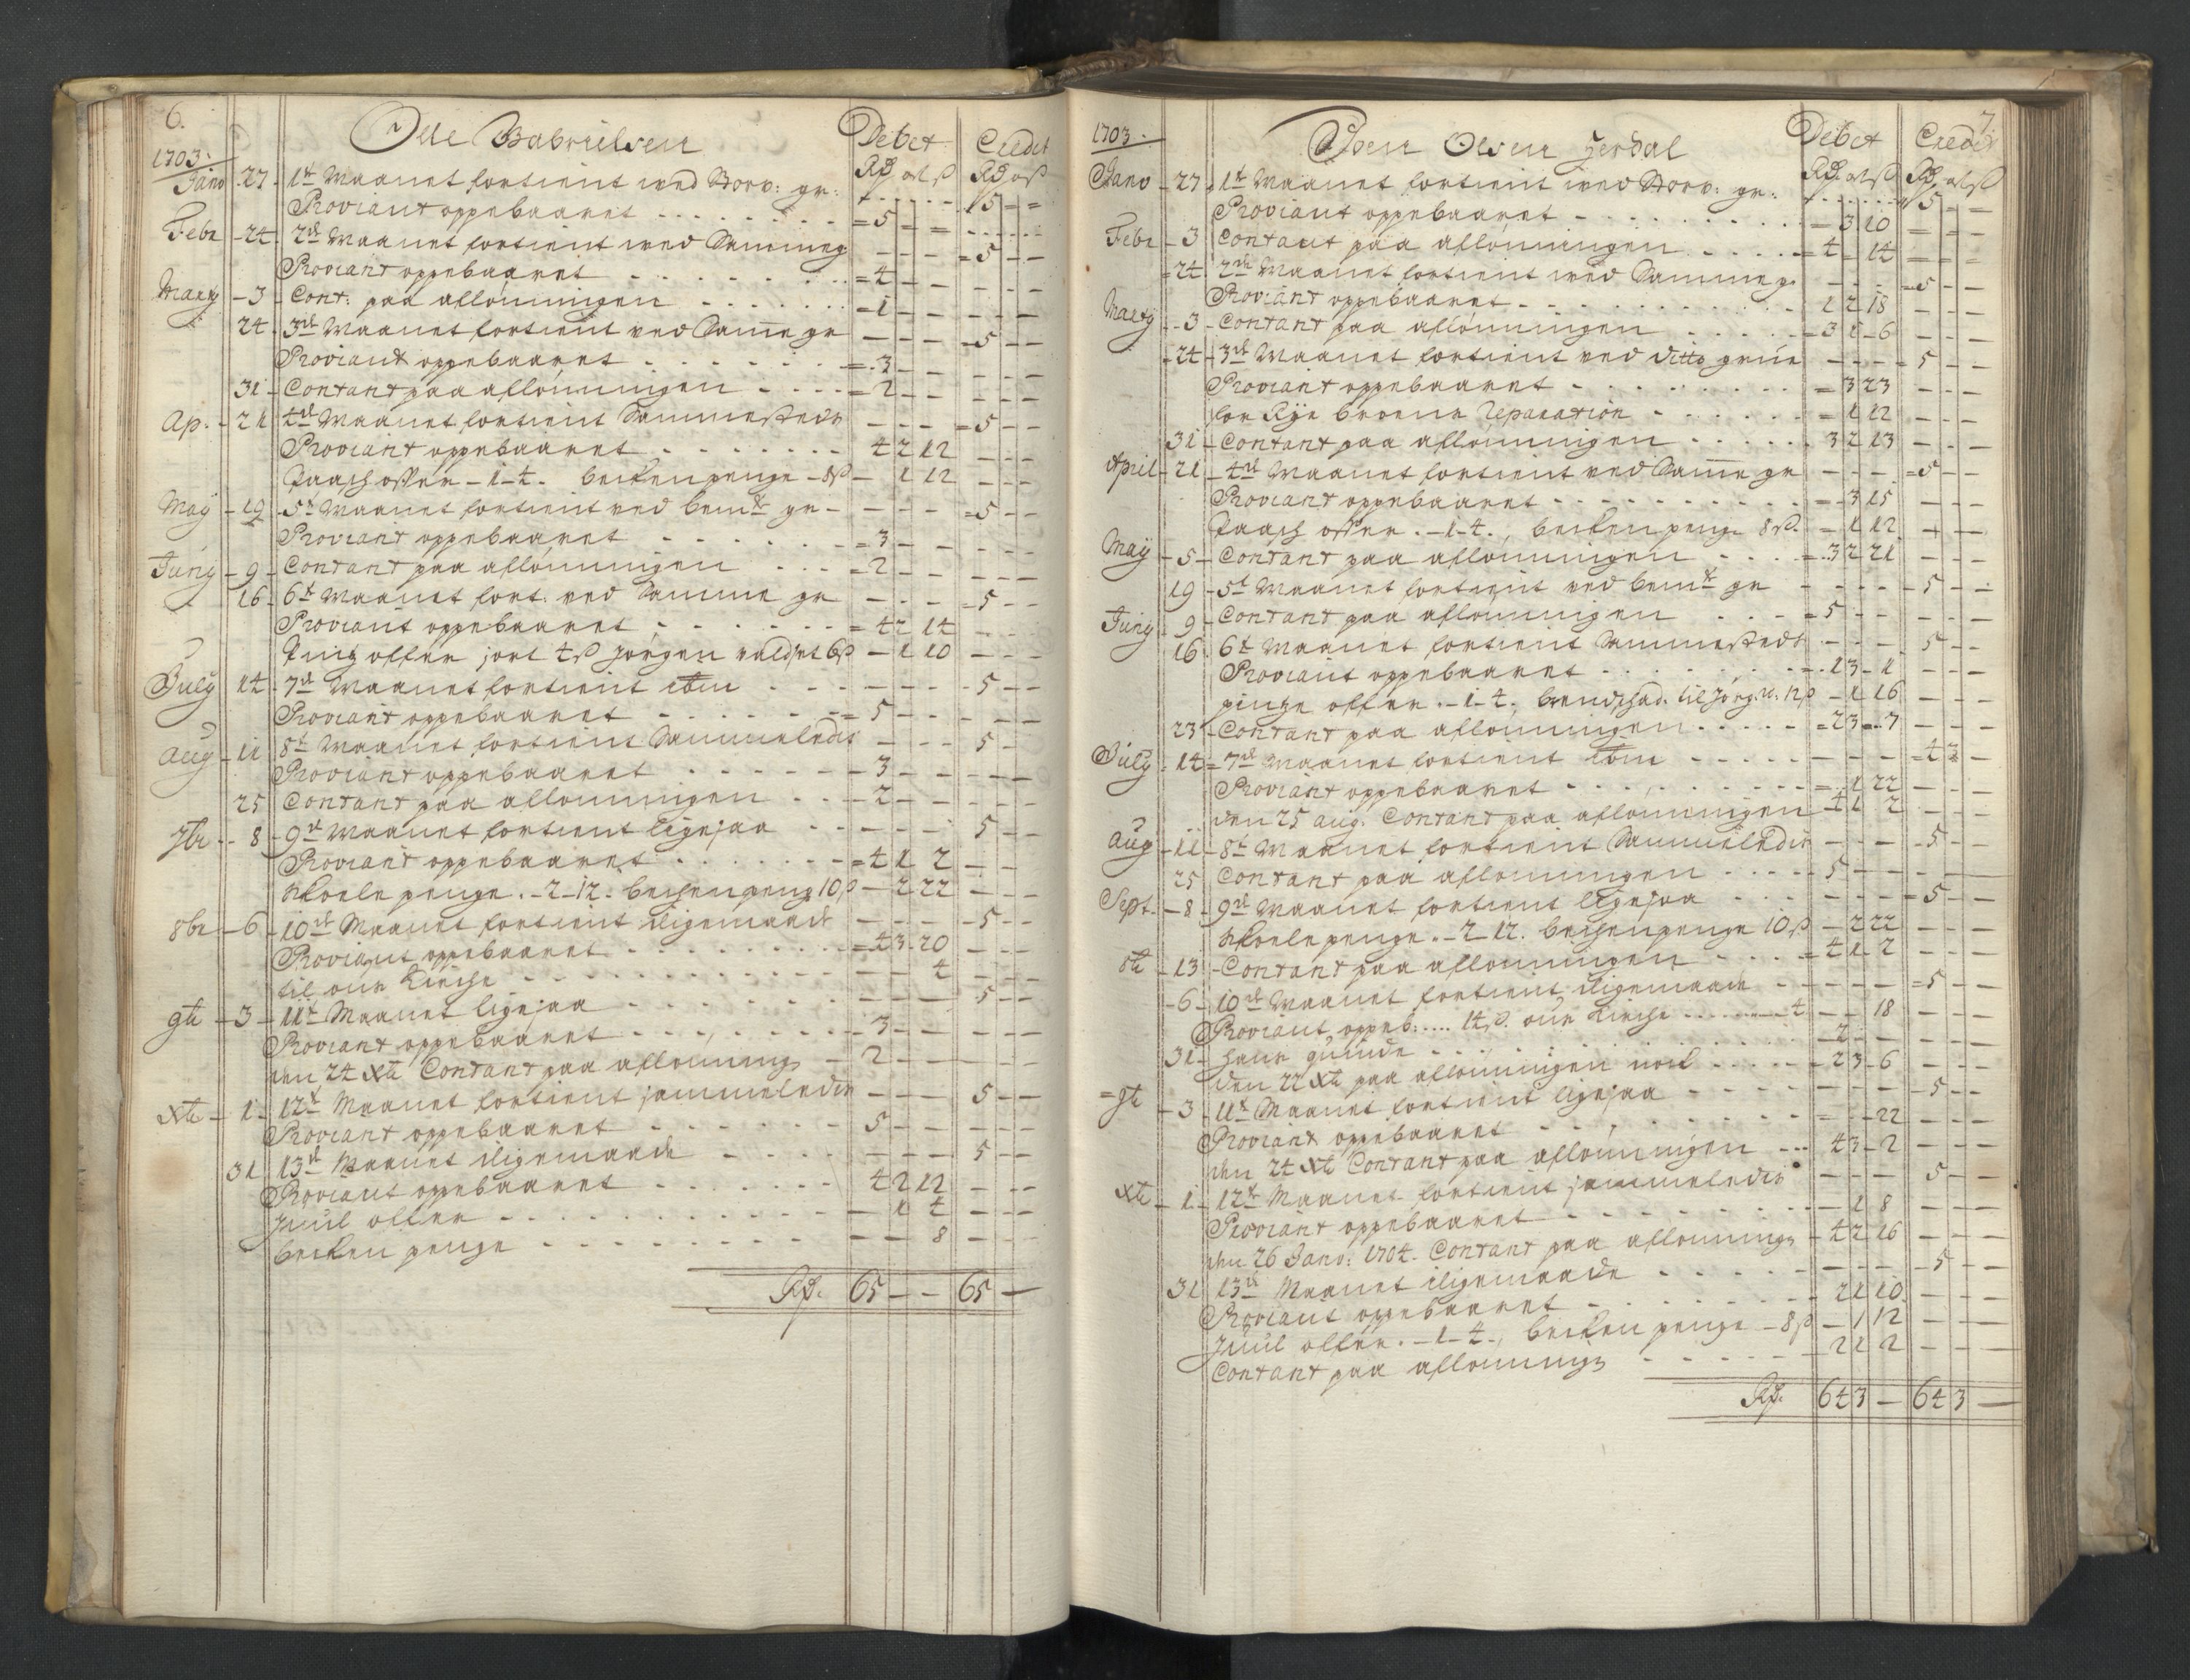 6.
Olle Gabrielsen Debet Credit
1703. Rd ort ß Rd ort ß
Janv 27 1te Maanet fortient wed Norv: gr: - - - 5 = =
Proviant oppebaaret = 5 - =
Febr 24 2de Maanet fortient wed Samme g - - - = 5 - -
Proviant oppebaaret = 4 - -
Marty 3 Cont: paa aflønningen = 1 - -
24 3de Maanet fortient ved Same gr - - - = 5 - -
Proviant oppebaaret = 3 - -
31 Contant paa aflønningen = 2 - -
Ap. 21 4de Maanet fortient Sammestedz - - - = 5 - -
Proviant oppebaaret 4 2 12
Paasch offer - 1 - 4. becken penge - 8ß - 1 12
May 19 5te Maanet fortient ved bemte gr - - - - = 5 - -
Proviant oppebaaret = 3 - -
Juny 9 Contant paa aflønningen = 2 - -
16 6te Maanet fort. ved Samme gr - - - = 5 - -
Proviant oppebaaret = 4 2 14
Pintz offer jort 4ß Jørgen 6ß - 1 10
July 14 7de Maanet fortient item - - - - 5 - -
Proviant oppebaaret = 5 - -
Aug 11 8te Maanet fortient Sammeledis - - - 5 -
Proviant oppebaaret - 3 - -
25 Contant paa aflønningen - 2 - -
7br 8 9de Maanet fortient ligesaa - - - 5 - -
Proviant oppebaaret = 4 1 2
Skoele penge. - 2 - 12. becken peng 10ß - 2 22
8br 6 10de Maanet fortient ligemaade - - - - 5 - -
Proviant oppebaaret = 4 3 20
til our Kirche - - 4
9br 3 11te Maanet ligesaa - - - 5 - -
Proviant oppebaaret - 3 - -
den 24 Xbr Contant paa aflønning - 2 - -
Xbr 1 12te Maanet fortient sammeledis - - - 5 - -
Proviant oppebaaret 5 - -
31 13de Maanet ligemaade - - - 5 - -
Proviant oppebaaret 4 2 12
Juul offer - 1 4
becken penge - - 8
Rd. 65 - - 65 -
7
1703. Olsen Jerdal Debet Credit
Rd. ort ß Rd. ort ß
Janv 27 1te Maanet fortient wed Norv: gr: 5 - -
Proviant oppebaaret - 3 10
Febr 3 Contant paa aflønningen = 4 - 14
24 2de Maanet fortient wed Samme g. - - - = 5 - -
Proviant oppebaaret 1 2 18
Marty 3 Contant paa aflønningen = 3 1 - 6
24 3de Maanet fortient ved ditto grue - - - - 5 - -
Proviant oppebaaret = 3 23
for Rye broens Reparation = 1 12
31 Contant paa aflønningen 3 2 13
April 21 4de Maanet fortient ved Same gr - - - = 5 - -
Proviant oppebaaret = - 3 15
Paasch offer. - 1 - 4., becken penge 8ß. - 1 12
May 5 Contant paa aflønningen = 3 2 21
19 5te Maanet fortient ved bemte gr - - - - 5 - -
Juny 9 Contant paa aflønningen = 5 - -
16 6te Maanet fortient Sammestedz - - - 5 - -
Proviant oppebaaret 1 3 - 1
pintze offer. - 1 - 4. til Jørg. - 1 16
23 Contant paa aflønningen = 2 3 = 7
July 14 7de Maanet fortient item - - - = 4 3 -
Proviant oppebaaret - 1 22
den 25 aug. Contant paa aflønningen 4 1 2
Aug 11 8te Maanet fortient Sammeledis - - - - 5 - -
25 Contant paa aflønningen 5 - -
Sept. 8 9de Maanet fortient ligesaa - - - = 5 - -
Skoele penge. - 2 12. becken penge 10ß - 2 22
8br 13 Contant paa aflønningen = 4 1 - 2
6 10de Maanet fortient ligemaade - - - = 5 - -
Proviant oppeb: .... 14ß. our Kirche - 4 - - 18
31 hans quinde 2 - -
den 22 Xbr paa aflønningen - 2 3 - 6
9br 3 11te Maanet fortient ligesaa - - - - 5 - -
Proviant oppebaaret - - 22
den 24 Xbr Contant paa aflønningen 4 3 - 2
Xbr 1 12te Maanet fortient sammeledis - - - 5 - -
Proviant oppebaaret - 1 8
den 26 Janv: 1704. Contant paa aflønning - 4 2 16
31 13de Maanet ligemaade - - - - 5 - -
Proviant oppebaaret - 2 1 10
Juul offer. - 1 - 4., becken penge - 8ß - 1 12
Contant paa aflønning - 2 1 2
Rd. 64 3 - 64 3 -